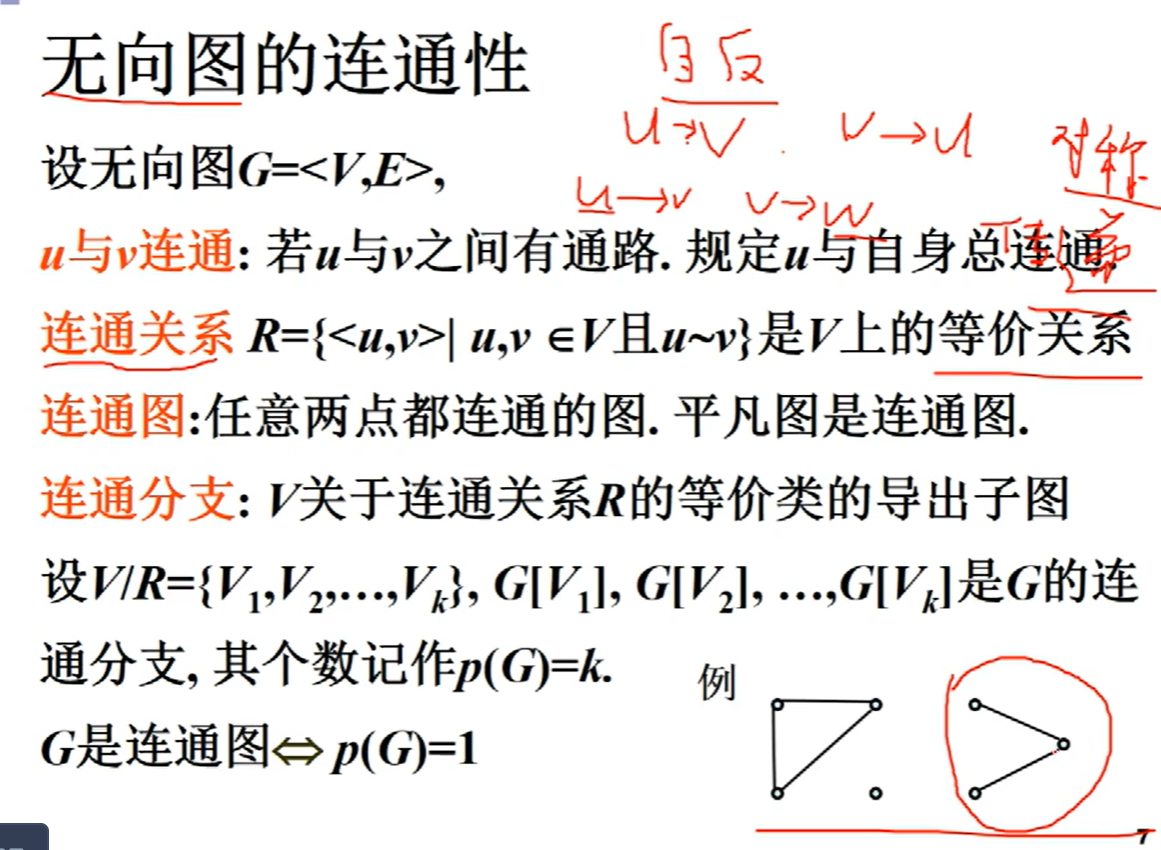 无向图的连通性
自反
u→v . v→u
对称
u→v v→w
传递
设无向图G=<V,E>,
u与v连通: 若u与v之间有通路. 规定u与自身总连通.
连通关系 R={<u,v>| u,v ∈V且u~v}是V上的等价关系
连通图:任意两点都连通的图. 平凡图是连通图.
连通分支: V关于连通关系R的等价类的导出子图
设V/R={V1,V2,…,Vk}, G[V1], G[V2], …,G[Vk]是G的连
通分支, 其个数记作p(G)=k.
例
G是连通图⇔ p(G)=1
7